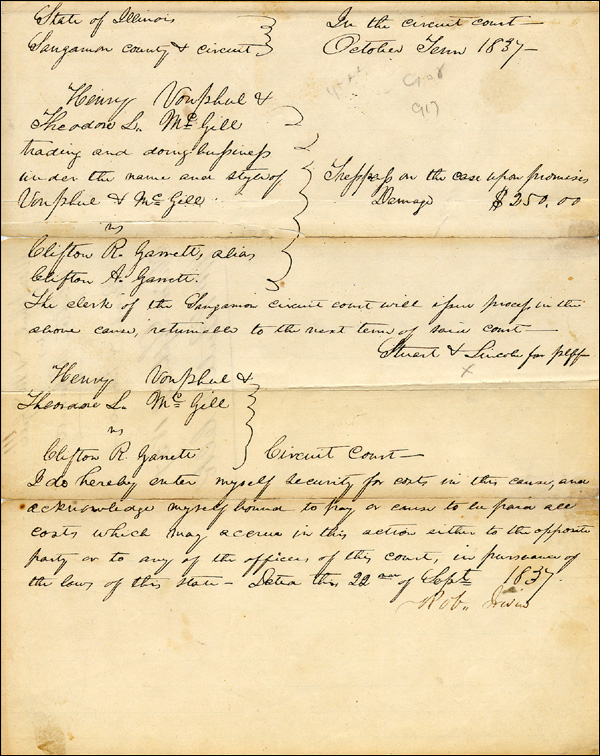 State of Illinois
Sangamon county & circuit
In the circuit court
October Term 1837
Henry Vonphul &
Theodore L. McGill
trading and doing bussiness
under the name and style of
Vonphul & McGill
vs
Clifton R. Garrett, alias
Clifton A. Garrett.
Tresspass on the case upon promises
Damage $250.00
The clerk of the Sangamon circuit court will issue process in the
above cause, returnable to the next term of said court
Stuart & Lincoln for plff
Henry Vonphul &
Theodore L. McGill
vs
Clifton R. Garrett
Circuit Court
I do hereby enter myself security for costs in this cause, and
acknowledge myself bound to pay or cause to be paid all
costs which may accrue in this action either to the opposite
party or to any of the officers of this court, in pursuance of
the laws of this state - Dated this 22nd of Sept 1837.
Rob. Irwin